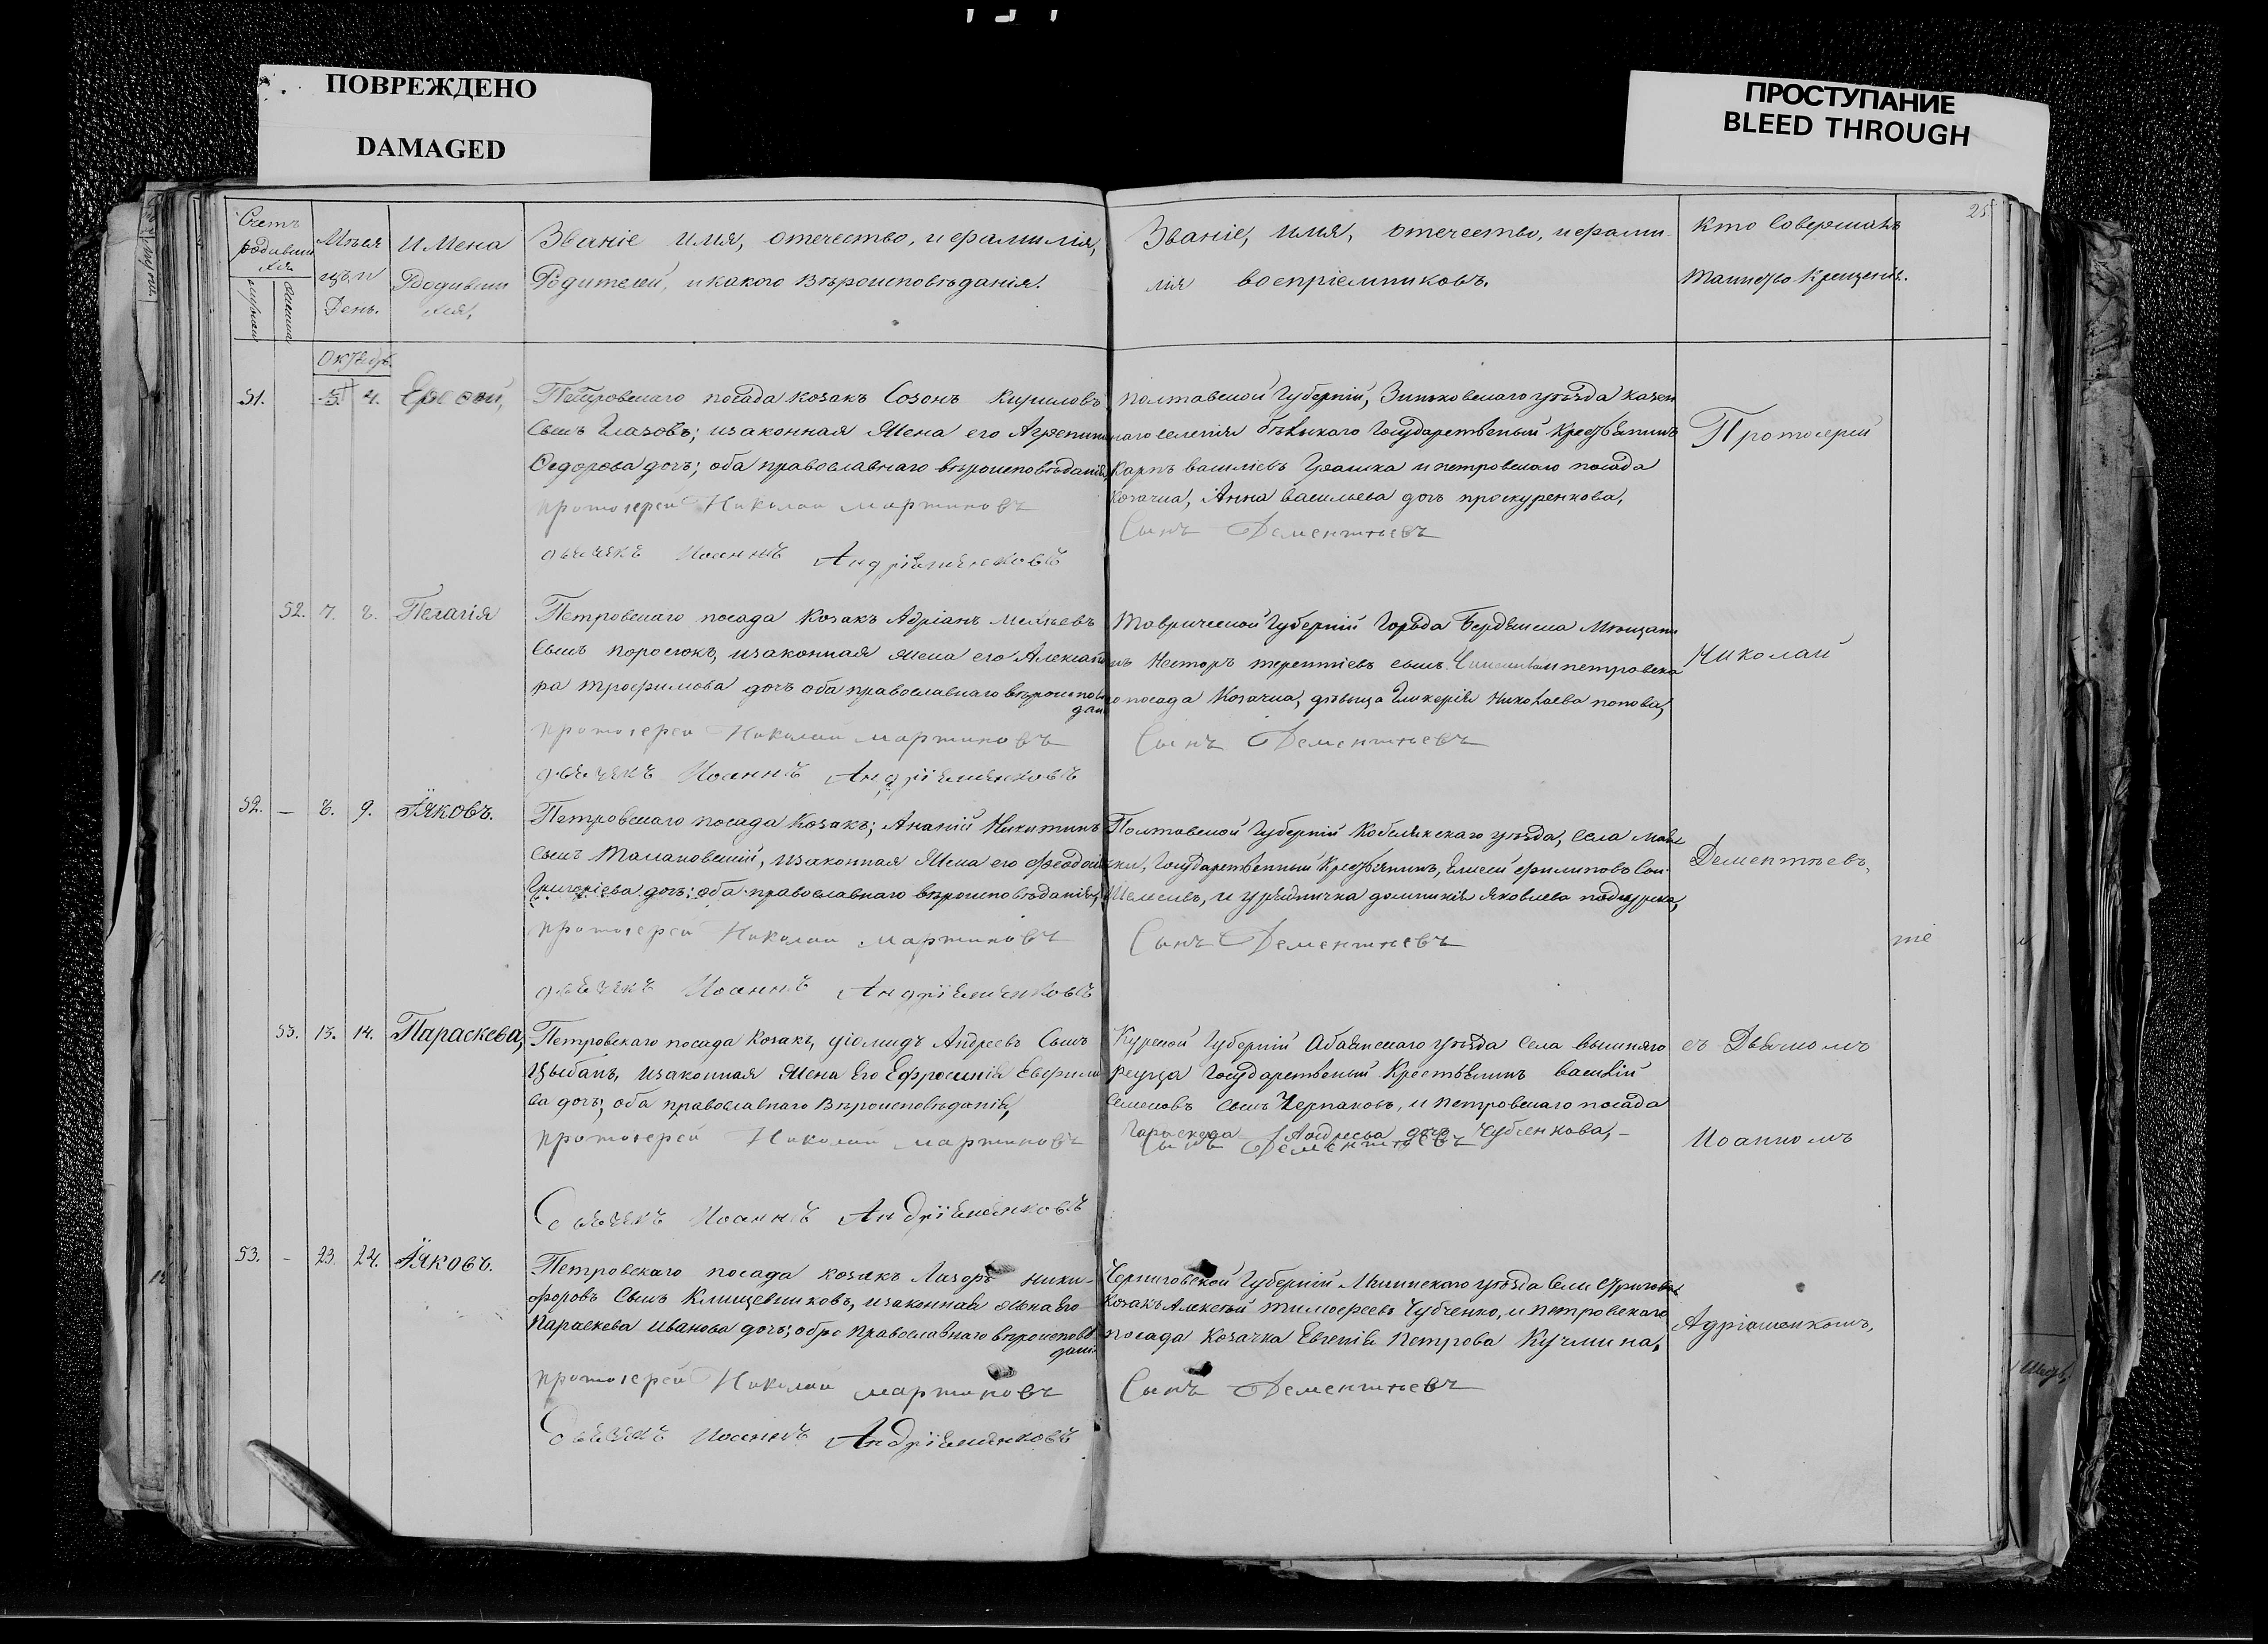 ПОВРЕЖДЕНО
DAMAGED
ПРОСТУПАНИЕ
BLEED THROUGH
25
Счетъ родившихся
Мѣсяцъ и День.
Имена Родившихся,
Званіе имя, отечество, и фамилія,
Родителей, и какого Вѣроисповѣданія.
Званіе, имя, отечество, и фами
лія воспріемниковъ.
Кто Совершалъ
Таинство Крещенія.
Октябр.
51.
3. 4.
Петровскаго посада козакъ Созонъ Кириловъ
сынъ Глазовъ; и законная Жена его Агрепина
Федорова дочь; оба православнаго вѣроисповѣданія,
протоіерей Николай Мартиновъ
дьячекъ Иоаннъ Андріяшенковъ
Полтавской Губерніи, Зиньковскаго уѣзда казен
наго селенія Государственый Крестьянинъ
Карпъ василіевъ и петровскаго посада
козачка, Анна васильева дочь проскуренкова,
Сынъ Дементьевъ
52. 7. 8. Пелагія
Петровскаго посада Козакъ Адріанъ
сынъ поросюкъ, и законная жена его Алексан
ра трофимова дочь оба православнаго вѣроисповѣ
дан
протоіерей Николай Мартиновъ
дьячекъ Иоаннъ Андріяшенковъ
Таврической Губерніи Города Бердянска Мѣщани
нъ Несторъ терентіевъ сынъ и петровска
го посада Козачка, дѣвица Гликерія Николаева попова,
Сынъ Дементьевъ
52. — 8. 9. Їяковъ.
Петровскаго посада Козакъ; Ананій Никитинъ
сынъ Малановскій, и законная Жена его Феодосія
Григоріева дочь; оба православнаго вѣроисповѣданія,
протоіерей Николай Мартиновъ
дьячекъ Иоаннъ Андріяшенковъ
Полтавской Губерніи Кобелякскаго уѣзда, села
Государственный Крестьянинъ, Елисей филиповъ
и урядничка домникія Яковлева
Сынъ Дементьевъ
53. 13. 14. Параскева,
Петровскаго посада Козакъ, діомидъ Андреевъ Сынъ
Цыбань, и законная Жена Его Ефросинія
ва дочь; оба православнаго Вѣроисповѣданія,
протоіерей Николай Мартиновъ
дьячекъ Иоаннъ Андріяшенковъ
Курской Губерніи Обаянскаго уѣзда села вышняго
реутца Государственый Крестьянинъ василій
Семеновъ сынъ Черпаковъ, и петровскаго посада
Параскева Андреева дочь Чубченкова, —
Сынъ Дементьевъ
53. - 23. 24. Їяковъ.
Петровскаго посада козакъ Лазоръ ники-
форовъ Сынъ Клищевниковъ, и законная жена Его
Параскева Иванова дочь; обое православнаго вѣроисповѣ
дані
протоіерей Николай Мартиновъ
дьячекъ Иоаннъ Андріяшенковъ
Черниговской Губерніи Мглинскаго уѣзда
козакъ Алексѣй тимофеевъ Чубченко, и петровскаго
посада Козачка Евгенія Петрова Кучмина,
Сынъ Дементьевъ
Протоерей
Николай
Дементьевъ,
съ Дьячкомъ
Иоанномъ
Адріашенкомъ,